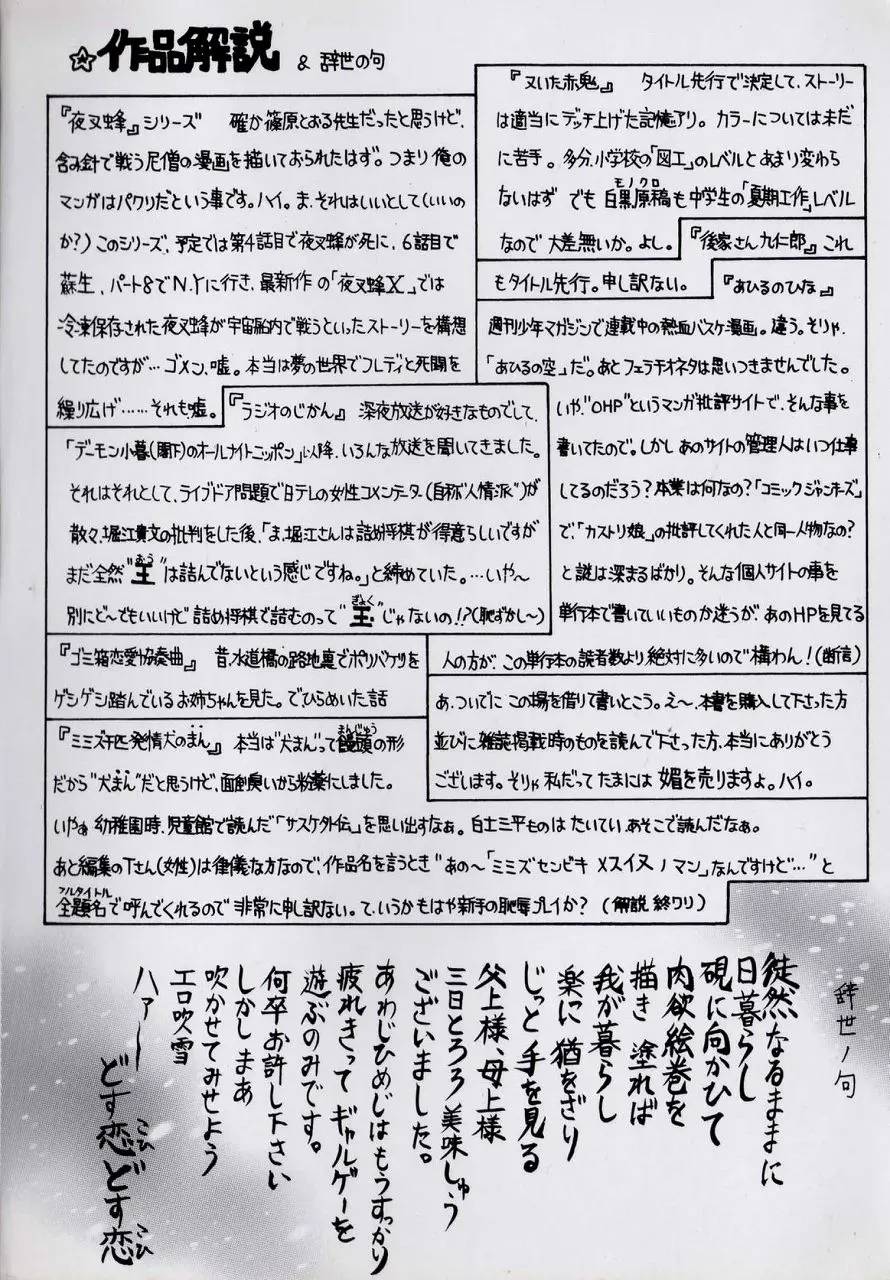 ☆作品解説 & 辞世の句
『夜叉蜂』シリーズ 確か篠原とおる先生だったと思うけど、
含み針で戦う尼僧の漫画を描いておられたはず。つまり俺の
マンガはパクリだという事です。ハイ。ま、それはいいとして(いいの
か?)このシリーズ、予定では第4話目で夜叉蜂が死に、6話目で
蘇生、パート8でN.Yに行き、最新作の「夜叉蜂X」では
冷凍保存された夜叉蜂が宇宙船内で戦うといったストーリーを構想
してたのですが…ゴメン、嘘。本当は夢の世界でフレディと死闘を
繰り広げ……それも嘘。
『ラジオのじかん』 深夜放送が好きなものでして、
「デーモン小暮(閣下)のオールナイトニッポン」以降、いろんな放送を聞いてきました。
それはそれとして、ライブドア問題で日テレの女性コメンテーター(自称“人情派”)が
散々、堀江貴文の批判をした後、「ま、堀江さんは詰め将棋が得意らしいですが
まだ全然“王”は詰んでないという感じですね。」と締めていた。…いや～
おう
別にど～でもいいけど 詰め将棋で詰むのって“玉”じゃないの!?(恥ずかし～)
ぎょく
『ゴミ箱恋愛協奏曲』 昔、水道橋の路地裏でポリバケツを
ゲシゲシ踏んでいるお姉ちゃんを見た。でひらめいた話
『ミミズ千匹発情犬のまん』 本当は“犬まん”って饅頭の形
まんじゅう
だから“犬まん”だと思うけど、面倒臭いから粉薬にしました。
いやぁ 幼稚園時、児童館で読んだ「サスケ外伝」を思い出すなぁ。白土三平ものは たいてい、あそこで読んだなぁ。
あと編集のTさん(女性)は律儀な方なので、作品名を言うとき“あの～「ミミズセンビキ メスイヌノマン」なんですけど…”と
全題名で呼んでくれるので 非常に申し訳ない。て、いうかもはや新手の恥辱プレイか? (解説 終ワリ)
フルタイトル
『又いた赤鬼』 タイトル先行で決定して、ストーリー
は適当にデッチ上げた記憶アリ。カラーについては未だ
に苦手。多分、小学校の「図工」のレベルとあまり変わら
ないはず でも 白黒原稿も中学生の「夏期工作」レベル
モノクロ
なので 大差無いか。よし。
『後家さん九仁郎』 これ
もタイトル先行。申し訳ない。
『あひるのひな』
週刊少年マガジンで連載中の熱血バスケ漫画。違う。そりゃ、
「あひるの空」だ。あとフェラチオネタは思いつきませんでした。
いや、“OHP”というマンガ批評サイトで、そんな事を
書いてたので。しかし あのサイトの管理人はいつ仕事
してるのだろう?本業は何なの?「コミックジャンキーズ」
で、「カストリ娘」の批評してくれた人と同一人物なの?
と謎は深まるばかり。そんな個人サイトの事を
単行本で書いていいものか迷うが、あのHPを見てる
人の方が、この単行本の読者数より絶対に多いので構わん!(断信)
あ、ついでに この場を借りて書いとこう。え～、本書を購入して下さった方
並びに雑誌掲載時のものを読んで下さった方、本当にありがとう
ございます。そりゃ 私だって たまには 媚を売りますよ。ハイ。
辞世ノ句
徒然なるままに
日暮らし
硯に向かひて
肉欲絵巻を
描き 塗れば
我が暮らし
楽に猶をざり
じっと 手を見る
父上様、母上様
三日とろろ 美味しゅう
ございました。
あわじひめじはもうすっかり
疲れきって ギャルゲーを
遊ぶのみです。
何卒お許し下さい
しかしまあ
吹かせてみせよう
エロ吹雪
ハァー
どす恋どす恋
こひ
こひ